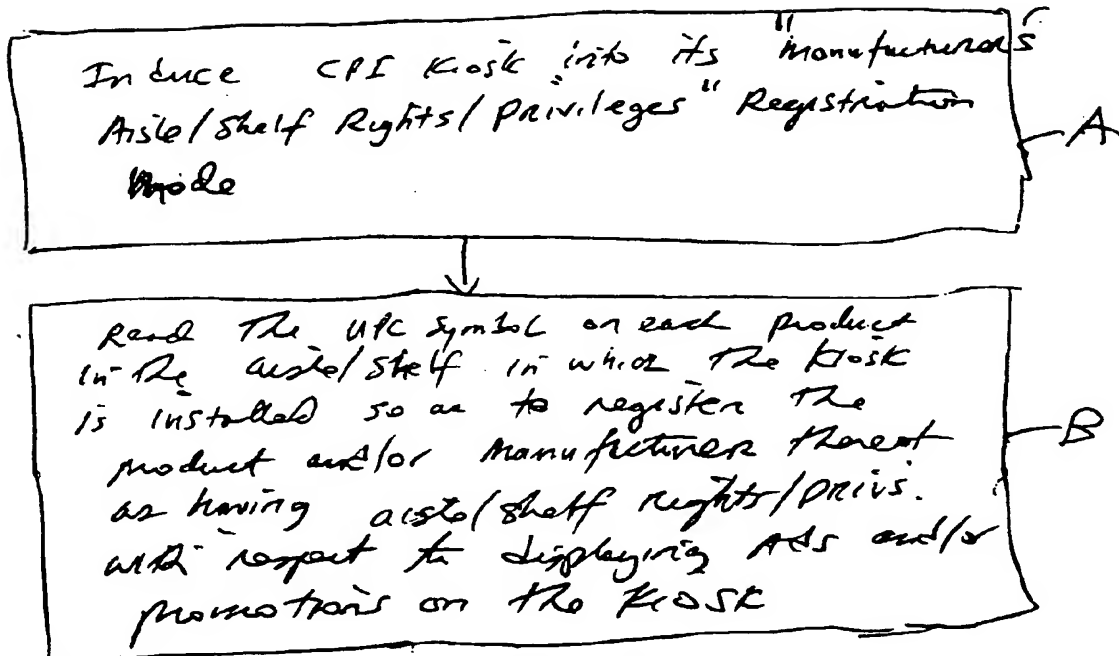 Induce CPI Kiosk into its "Manufacturers
Aisle/Shelf Rights/Privileges" Registration
Mode
A
Read The UPC Symbol on each product
in the aisle/shelf in which the Kiosk
is installed so as to register the
product and/or Manufacturer thereof
as having aisle/shelf rights/privs.
with respect to displaying Ads and/or
promotions on the Kiosk
B